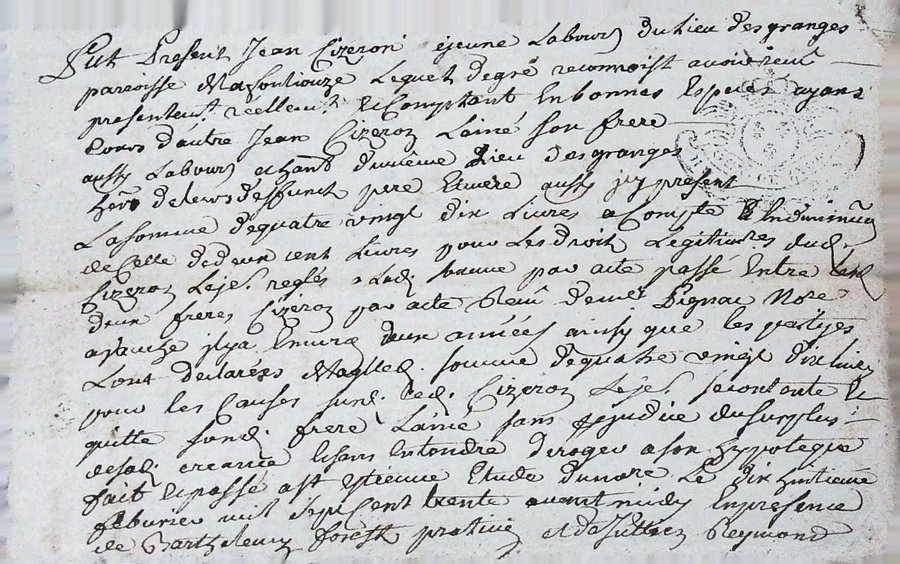 Fut Present Jean Cizeron jeune Labour du Lieu des granges
paroisse de Lequel de gré reconnoist avoir receu
presentem.t réellem.t et Comptant En bonnes Especes ayans
Cours d'autre Jean Cizeron Laine Son frere
aussy Labour du Lieu des granges
de Leurs deffunct pere Et mere aussy icy present
La somme de quatre vingt dix Livres a Compte
de Celle de deux cent Livres pour Les droit Legitimes dud.
Cizeron Le je. reglés a Lad. somme par acte passé Entre Lesd
deux freres Cizeron par acte Receu de me Pignac No.re
il y a Environ deux années ainsy que les partyes
L'ont declarées de Laq.lle somme de quatre vingt dix livres
pour les Causes susd. Led. Cizeron Le je. se contente Et
quitte sond. frere Laine sans prejudice du surplus
de sad. creance Et sans Entendre deroger a son hypoteque
fait Et passé a St Estienne Etude du no.re Le dix huitieme
febvrier mil sept cent trente avant midy En presence
de Barthelemy forest praticien et de Jullien Reymond